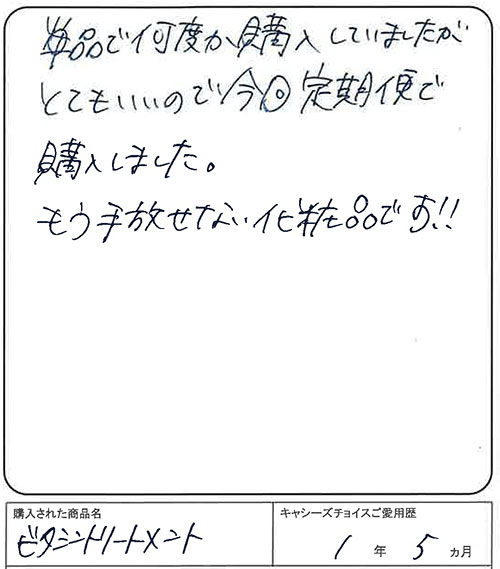 単品で何度か購入していましたが
とてもいいので今回定期便で
購入しました。
もう手放せない化粧品です!!
購入された商品名
ビタミントリートメント
キャシーズチョイスご愛用歴
1年5ヵ月